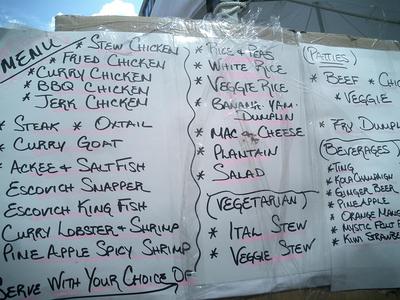 MENU
* STEW CHICKEN
* FRIED CHICKEN
* CURRY CHICKEN
* BBQ CHICKEN
* JERK CHICKEN
* STEAK * OXTAIL
* CURRY GOAT
* ACKEE + SALTFISH
ESCOVICH SNAPPER
ESCOVICH KING FISH
CURRY LOBSTER + SHRIMP
PINEAPPLE SPICY SHRIMP
SERVE WITH YOUR CHOICE OF
* RICE & PEAS
* WHITE RICE
* VEGGIE RICE
* BANANA. YAM.
DUMPLIN
* MAC & CHEESE
* PLANTAIN
* SALAD
(VEGETARIAN)
* ITAL STEW
* VEGGIE STEW
(PATTIES)
* BEEF * CHIC
* VEGGIE
* FRY DUMPL
(BEVERAGES)
* TING
* KOLA CHAMPAIGN
* GINGER BEER
* PINEAPPLE
* ORANGE MANG
* MYSTIC FRUIT P
* KIWI STRAWBE